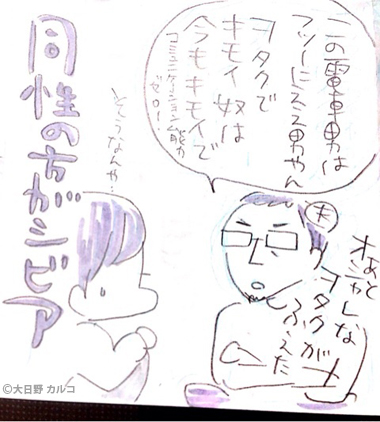 この電車男は
フツーにええ男やん
ヲタクで
キモイ奴は
今もキモイで
コミュニケーション能力
ゼロ!
夫
あと
オシャレな
ヲタクが
ふえた
そうなんや…
同性の方がシビア
©大日野 カルコ